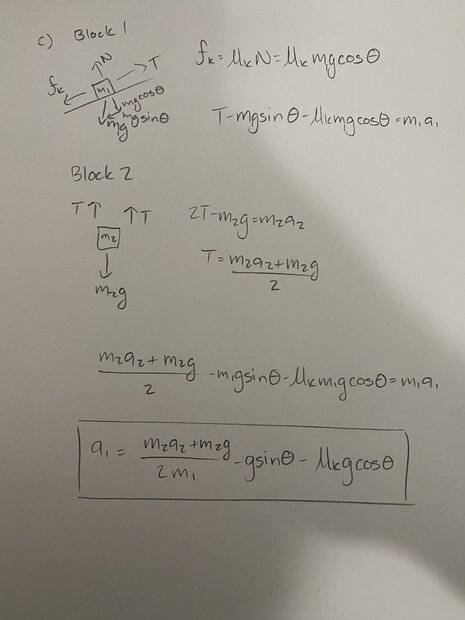 c) Block 1
N
T
fₖ
m₁
mgcosθ
mgsinθ
m₁g
fₖ = μₖN = μₖm₁gcosθ
T-mgsinθ-μₖm₁gcosθ=m₁a₁
Block 2
T↑ ↑T
m₂
m₂g
2T-m₂g=m₂a₂
T= m₂a₂+m₂g
2
m₂a₂+m₂g
2
-m₁gsinθ-μₖm₁gcosθ=m₁a₁
a₁ = m₂a₂+m₂g
2m₁
-gsinθ - μₖgcosθ